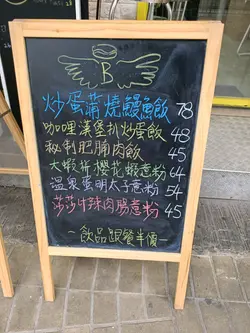 B
炒蛋蒲燒鰻魚飯 78
咖哩漢堡扒炒蛋飯 48
秘制肥腩肉飯 45
大蝦拼櫻花蝦意粉 64
溫泉蛋明太子意粉 54
莎莎汁辣肉腸意粉 45
~飲品跟餐半價~